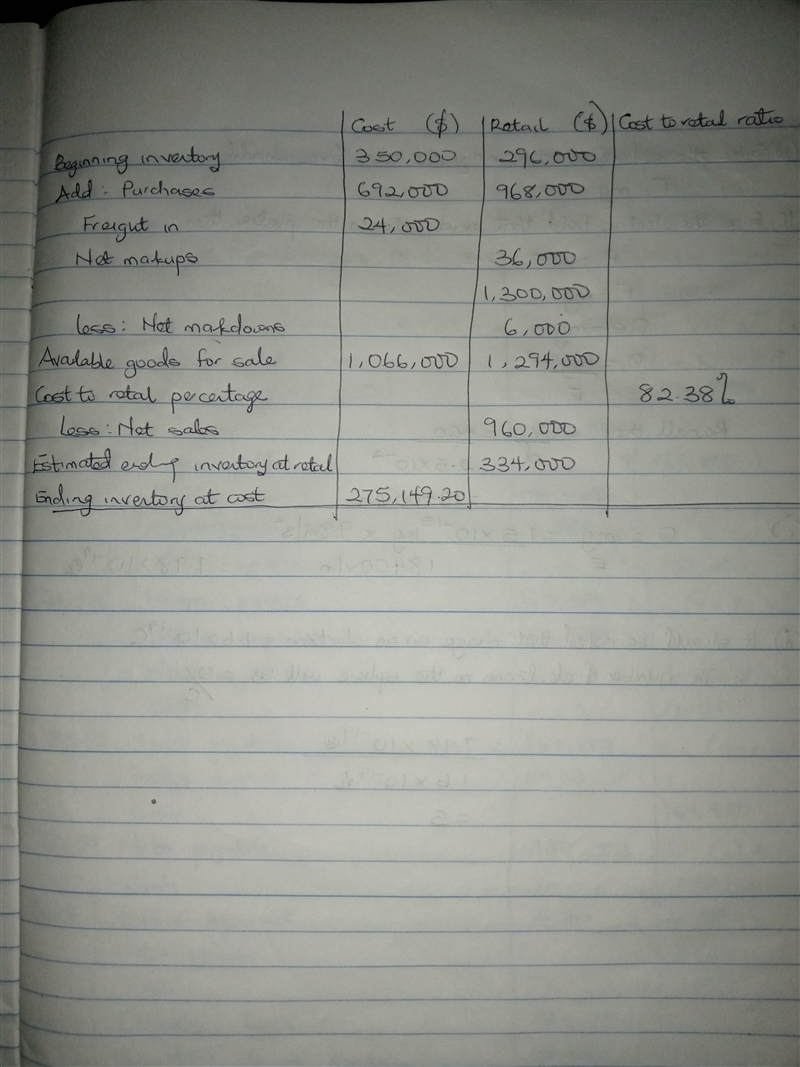 Cost ($) Retail ($) Cost to retail ratio
Beginning inventory 350,000 296,000
Add: Purchases 692,000 968,000
Freight in 24,000
Net makups 36,000
1,300,000
less: Net makdowns 6,000
Available goods for sale 1,066,000 1,294,000
Cost to retal percentage 82.38%
Less: Net sales 960,000
Estimated ending inventory at retal 334,000
Ending inventory at cost 275,149.20